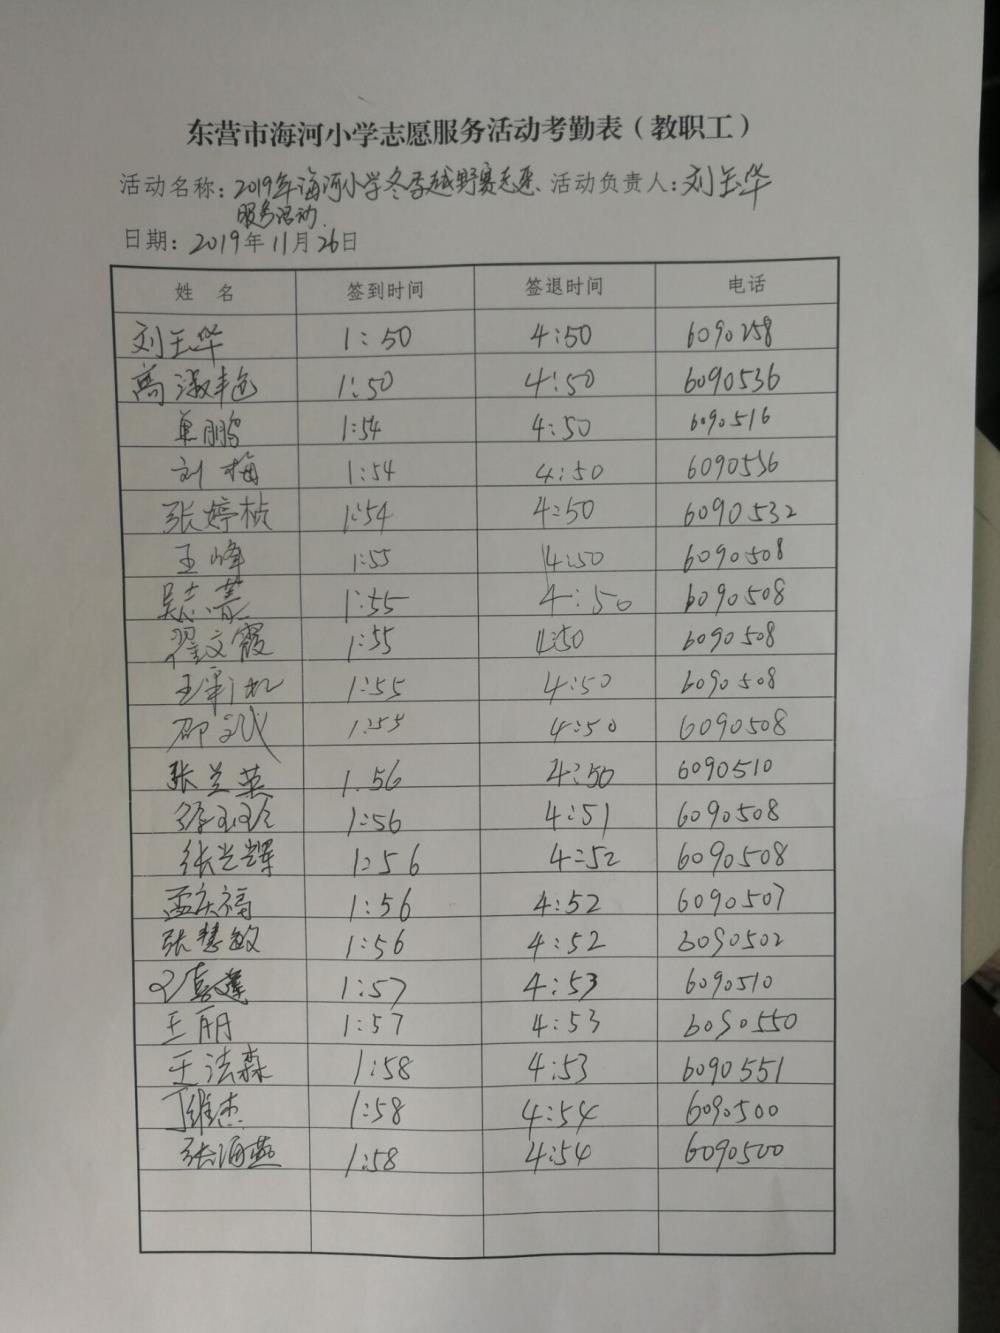 东营市海河小学志愿服务活动考勤表（教职工）
活动名称：2019年海河小学冬季越野赛志愿 活动负责人：刘玉华
服务活动
日期：2019年11月26日
姓 名 签到时间 签退时间 电话
刘玉华 1:50 4:50 6090258
高淑艳 1:50 4:50 6090536
单鹏 1:54 4:50 6090516
刘梅 1:54 4:50 6090536
张婷桢 1:54 4:50 6090532
王峰 1:55 4:50 6090508
吴志慧 1:55 4:50 6090508
翟文霞 1:55 4:50 6090508
1:55 4:50 6090508
邵斌 1:55 4:50 6090508
张兰英 1.56 4:50 6090510
1:56 4:51 6090508
张兰辉 1:56 4:52 6090508
孟庆福 1:56 4:52 6090507
张慧敏 1:56 4:52 6090502
王喜莲 1:57 4:53 6090510
王丽 1:57 4:53 6090550
王法森 1:58 4:53 6090551
丁维杰 1:58 4:54 6090500
张海燕 1:58 4:54 6090500